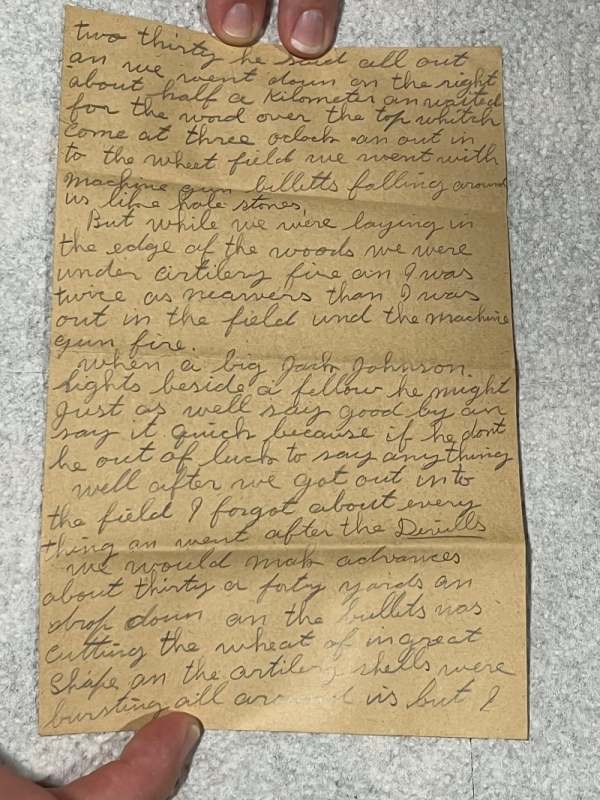 two thirty he said all out
an we went down on the right
about half a Kilometer an waited
for the word over the top whitch
come at three oclock an out in
to the wheet field we went with
machine gun billetts falling around
us like hale stones.
But while we were laying in
the edge of the woods we were
under artilery fire an I was
twice as nearvers than I was
out in the field und the machine
gun fire.
when a big Jack Johnson
lights beside a fellow he might
Just as well say good by an
say it quick because if he dont
he out of luck to say anything
well after we got out into
the field I forgot about every
thing an went after the Devills
we would mak advances
about thirty a forty yards an
drop down an the bullets was
cutting the wheat of in great
shape an the artilery shells were
bursting all around us but I